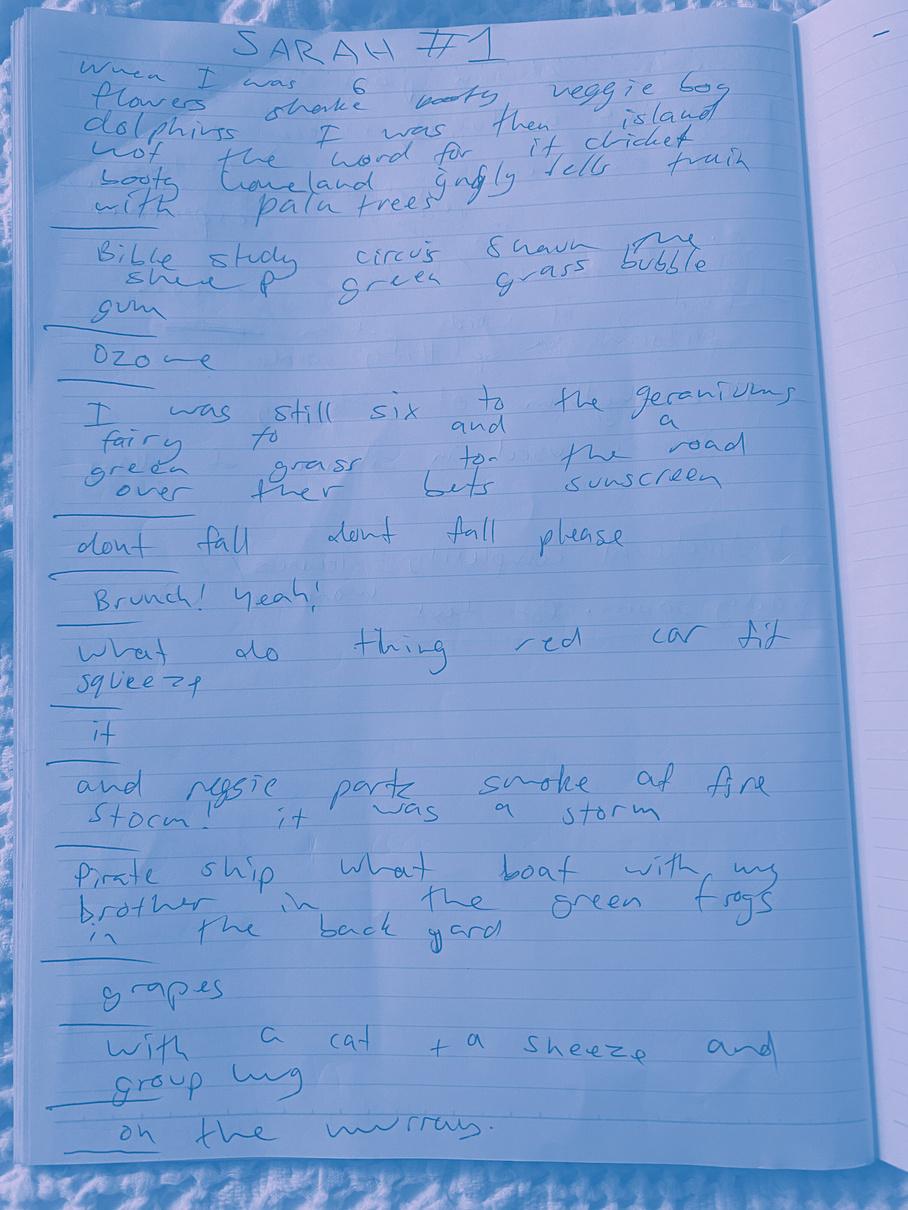 SARAH #1
When I was 6
flowers shake booty veggie bog
dolphins I was then island
not the word for it cricket
booty homeland jngly tells train
with palm trees
Bible study circus Shaun the
sheep green grass bubble
gum
Ozone
I was still six to the geraniums
fairy to and a
green grass to the road
over ther bets sunscreen
dont fall dont fall please
Brunch! Yeah!
What do thing red car fit
squeeze
it
and park smoke at fire
Storm! it was a storm
Pirate ship what boat with my
brother in the green frogs
in the back yard
grapes
with a cat + a sneeze and
group hug
on the murray.